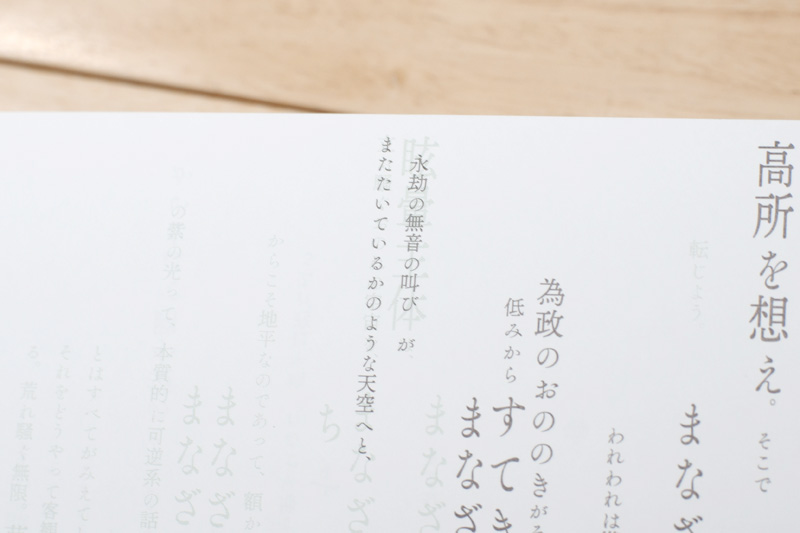 高所を想え。そこで
転じよう
まなざ
われわれは
為政のおののきが
低みから すてき
まなざ
永劫の無音の叫び が
またたいているかのような天空へと、
眩暈天体
まなざ
なざ
ち
からこそ地平なのであって、額か
まなざ
まなざ
の紫の光って、本質的に可逆系の話
とはすべてがみえて
それをどうやって客観
る。荒れ騒ぐ無限。